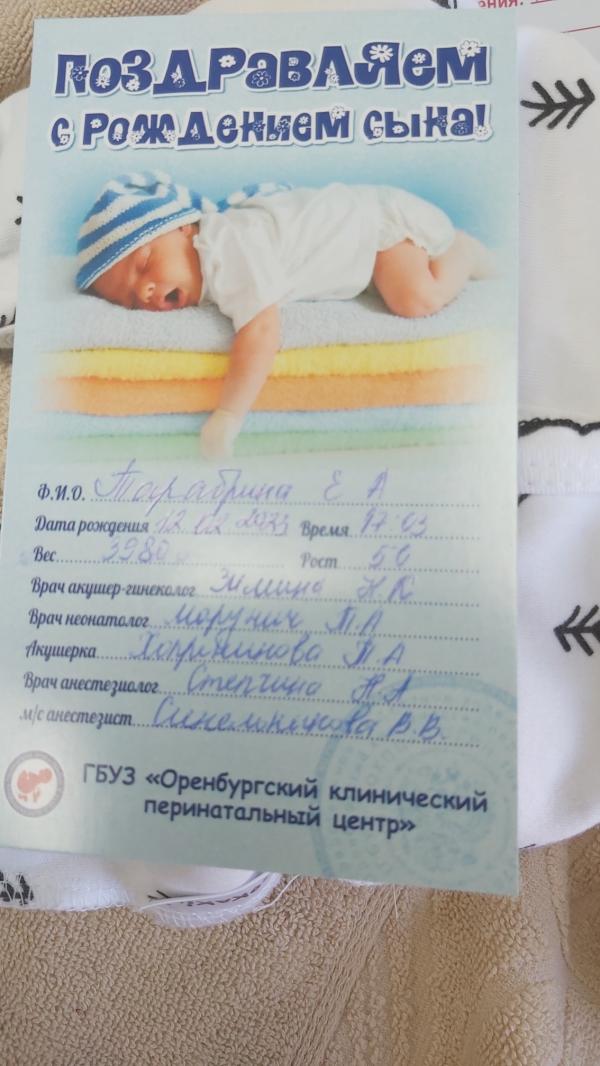 ения:
ПОЗДРАВЛЯЕМ
С РОЖДЕНИЕМ СЫНА!
Ф.И.О. Тарабрина Е А
Дата рождения 12 02 2023 Время 17 03
Вес 3980 Рост 56
Врач акушер-гинеколог Зимина Н К
Врач неонатолог П А
Акушерка П А
Врач анестезиолог Степчина Н А
м/с анестезист Синельникова В.В.
ГБУЗ «Оренбургский клинический
перинатальный центр»